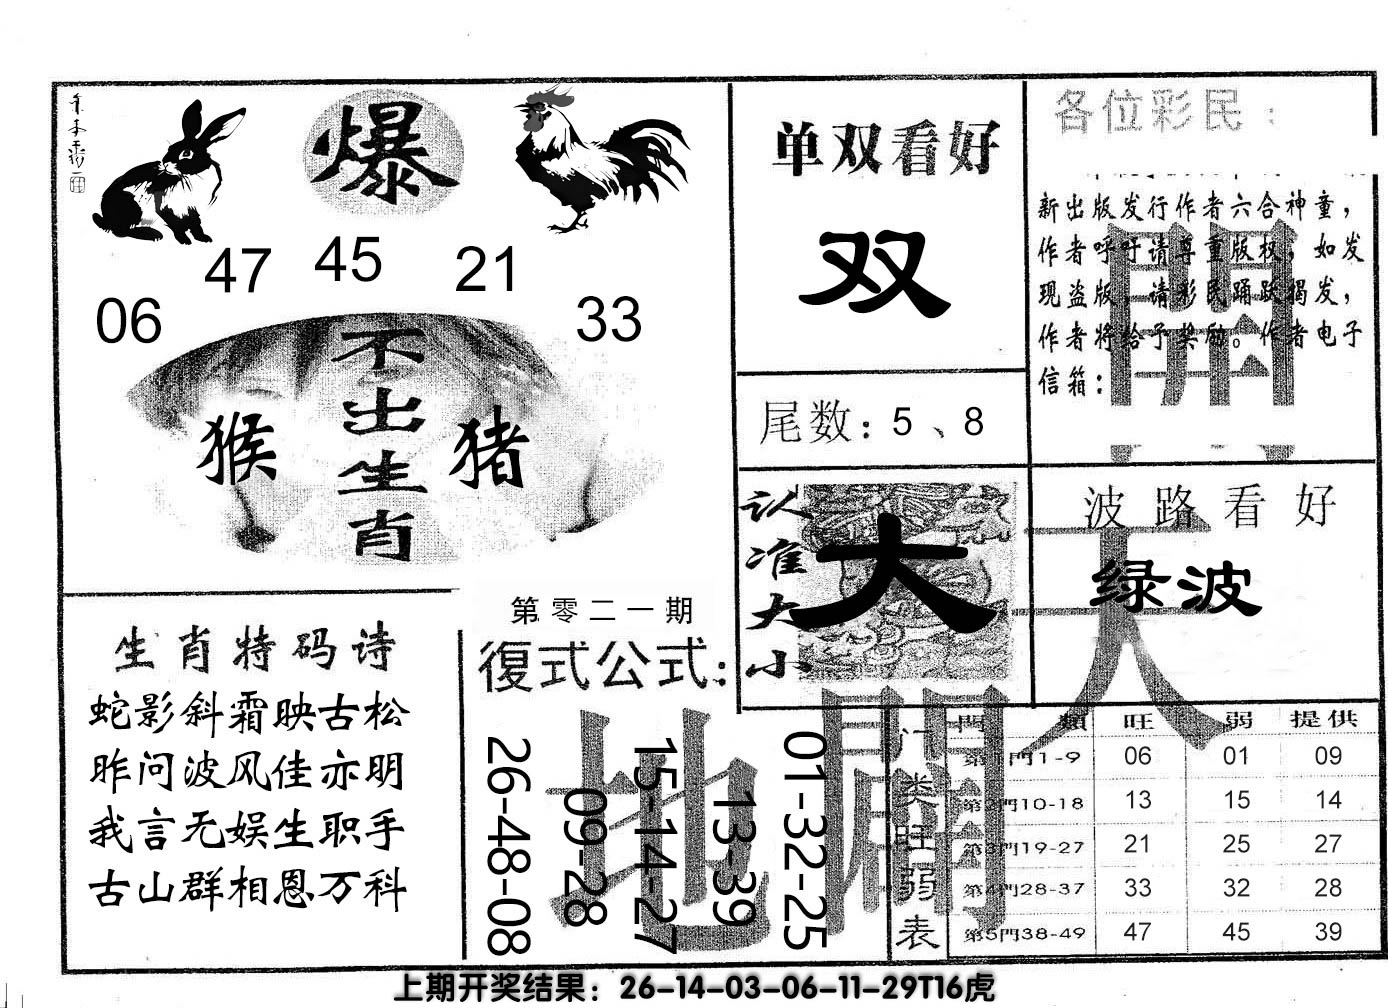 爆
47 45 21
06 33
不出生肖
猴 猪
单双看好
双
尾数：5、8
各位彩民：
新出版发行作者六合神童，
作者呼吁请尊重版权，如发
现盗版，请彩民踊跃揭发，
作者将给予奖励。作者电子
信箱：
開
认准大小
大
波路看好
绿波
天
生肖特码诗
蛇影斜霜映古松
昨问波风佳亦明
我言无娱生职手
古山群相恩万科
第零二一期
復式公式：
26-48-08
09-28
15-14-27
13-39
01-32-25
地
開
门类旺弱表
門類 旺 弱 提供
第1門1-9 06 01 09
第2門10-18 13 15 14
第3門19-27 21 25 27
第4門28-37 33 32 28
第5門38-49 47 45 39
上期开奖结果：26-14-03-06-11-29T16虎